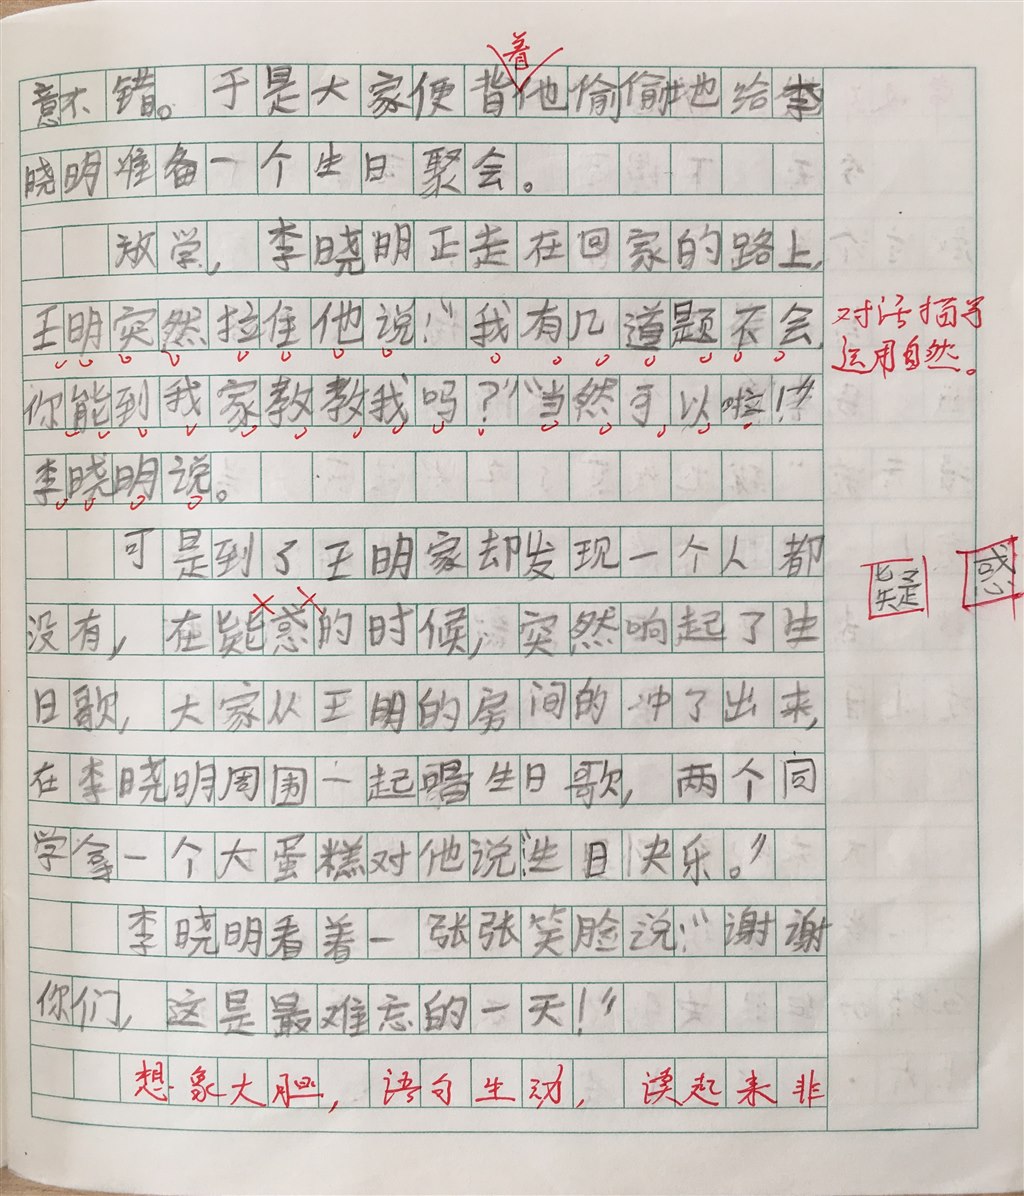 着
意不错。于是大家便背他偷偷地给李
晓明准备一个生日聚会。
放学，李晓明正走在回家的路上，
王明突然拉住他说：“我有几道题不会，
对话描写
运用自然。
你能到我家教教我吗？”“当然可以啦！”
李晓明说。
可是到了王明家却发现一个人都
疑 惑
没有，在疑惑的时候，突然响起了生
日歌，大家从王明的房间的冲了出来，
在李晓明周围一起唱生日歌，两个同
学拿一个大蛋糕对他说：“生日快乐。”
李晓明看着一张张笑脸说：“谢谢
你们，这是最难忘的一天！”
想象大胆，语句生动，读起来非